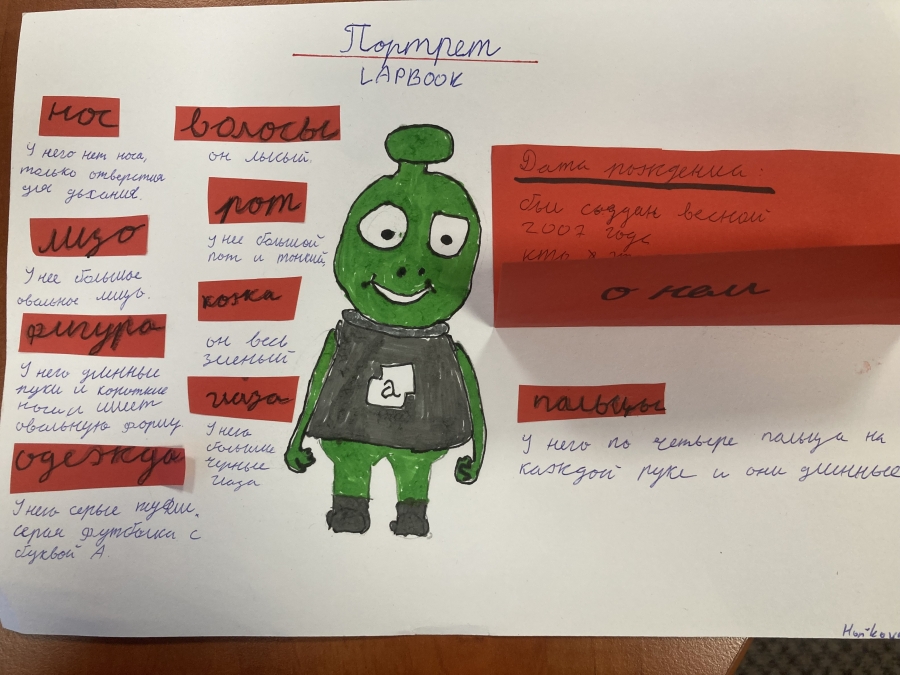 Портрет
LAPBOOK
нос
У него нет носа,
только отверстия
для дыхания.
лизо
У нее большое
овальное лизо.
фигура
У него длинные
руки и короткие
ноги и имеет
овальную форму
одежда
У него серые туфли.
серая футболка с
буквой А.
волосы
он лысый.
рот
У нее большой
рот и тонкий,
кожа
он весь
зиеный
глаза
У него
большие
черные
глаза
a
Дата рождения:
был создан весной
2007 года
о нем
пальцы
У него по четыре пальца на
каждой руке и они длинные